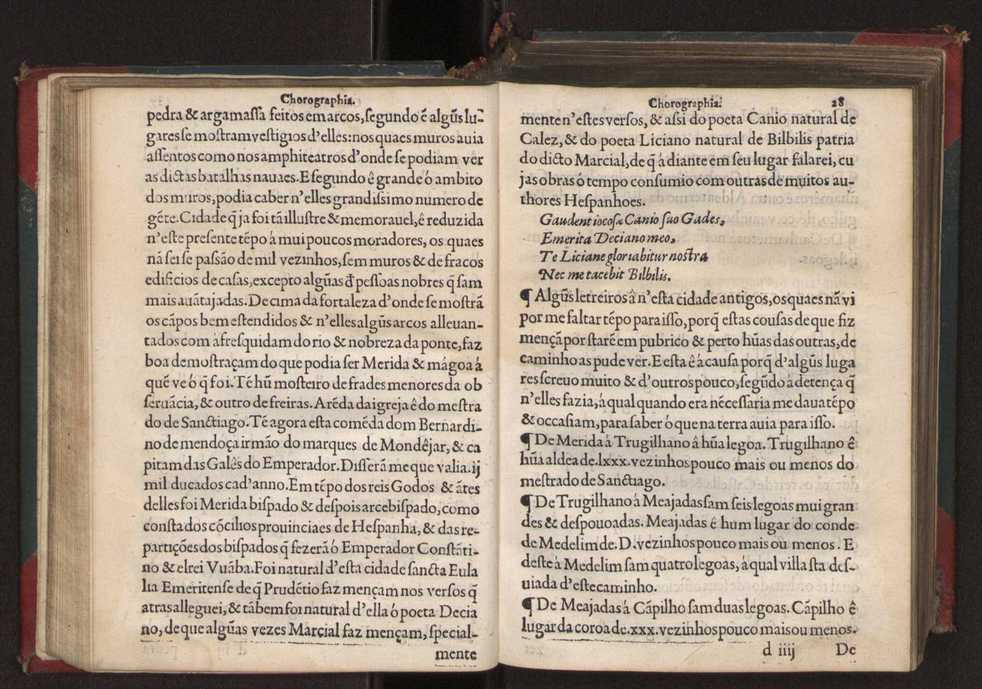 Chorographia.
pedra & argamassa feitos em arcos, segundo ẽ algũs lu-
gares se mostram vestigios d'elles: nos quaes muros auia
assentos como nos amphiteatros d'onde se podiam ver
as dictas batalhas nauaes. E segundo ê grande ó ambito
dos muros, podia caber n'elles grandissimo numero de
gẽte. Cidade q̃ ja foi tã illustre & memorauel, ê reduzida
n'este presente tẽpo â mui poucos moradores, os quaes
nã sei se passão de mil vezinhos, sem muros & de fracos
edificios de casas, excepto algũas d̃ pessoas nobres q̃ sam
mais auãtajadas. De cima da fortaleza d'onde se mostrã
os cãpos bem estendidos & n'elles algũs arcos alleuan-
tados com à fresquidam do rio & nobreza da ponte, faz
boa demostraçam do que podia ser Merida & mágoa á
quẽ ve ó q̃ foi. Tẽ hũ mosteiro de frades menores da ob
seruãcia, & outro de freiras. A rẽda da igreja ê do mestra
do de Sanctiago. Tẽ agora esta comẽda dom Bernardi-
no de mendoça irmão do marques de Mondêjar, & ca
pitam das Galês do Emperador. Disserã me que valia .ij
mil ducados cad'anno. Em tẽpo dos reis Godos & ãtes
delles foi Merida bispado & despois arcebispado, como
consta dos cõcilios prouinciaes de Hespanha, & das re-
partições dos bispados q̃ fezerã ó Emperador Constãti-
no & elrei Vuãba. Foi natural d'esta cidade sancta Eula
lia Emeritense de q̃ Prudẽtio faz mençam nos versos q̃
atras alleguei, & tãbem foi natural d'ella ó poeta Decia
no, de que algũas vezes Marcial faz mençam, special-
mente
Chorographia. 28
mente n'estes versos, & assi do poeta Canio natural de
Calez, & do poeta Liciano natural de Bilbilis patria
do dicto Marcial, de q̃ á diante em seu lugar falarei, cu
jas obras ó tempo consumio com outras de muitos au-
thores Hespanhoes.
Gaudent iocosæ Canio suo Gades,
Emerita Deciano meo,
Te Liciane gloriabitur nostra
Nec me tacebit Bilbilis.
¶ Algũs letreiros â n'esta cidade antigos, os quaes nã vi
por me faltar tẽpo para isso, porq̃ estas cousas de que fiz
mençã por starẽ em pubrico & perto hũas das outras, de
caminho as pude ver. E esta ê à causa porq̃ d'algũs luga
res screuo muito & d'outros pouco, segũdo à detença q̃
n'elles fazia, á qual quando era nécessaria me daua tẽpo
& occasiam, para saber ó que na terra auia para isso.
¶ De Merida à Trugilhano â hũa legoa. Trugilhano ê
hũa aldea de .lxxx. vezinhos pouco mais ou menos do
mestrado de Sanctiago.
¶ De Trugilhano á Meajadas sam seis legoas mui gran
des & despouoadas. Meajadas é hum lugar do conde
de Medelim de .D. vezinhos pouco mais ou menos. E
deste à Medelim sam quatro legoas, á qual villa sta des-
uiada d'este caminho.
¶ De Meajadas á Cãpilho sam duas legoas. Cãpilho ê
lugar da coroa de .xxx. vezinhos pouco mais ou menos.
d iiij De